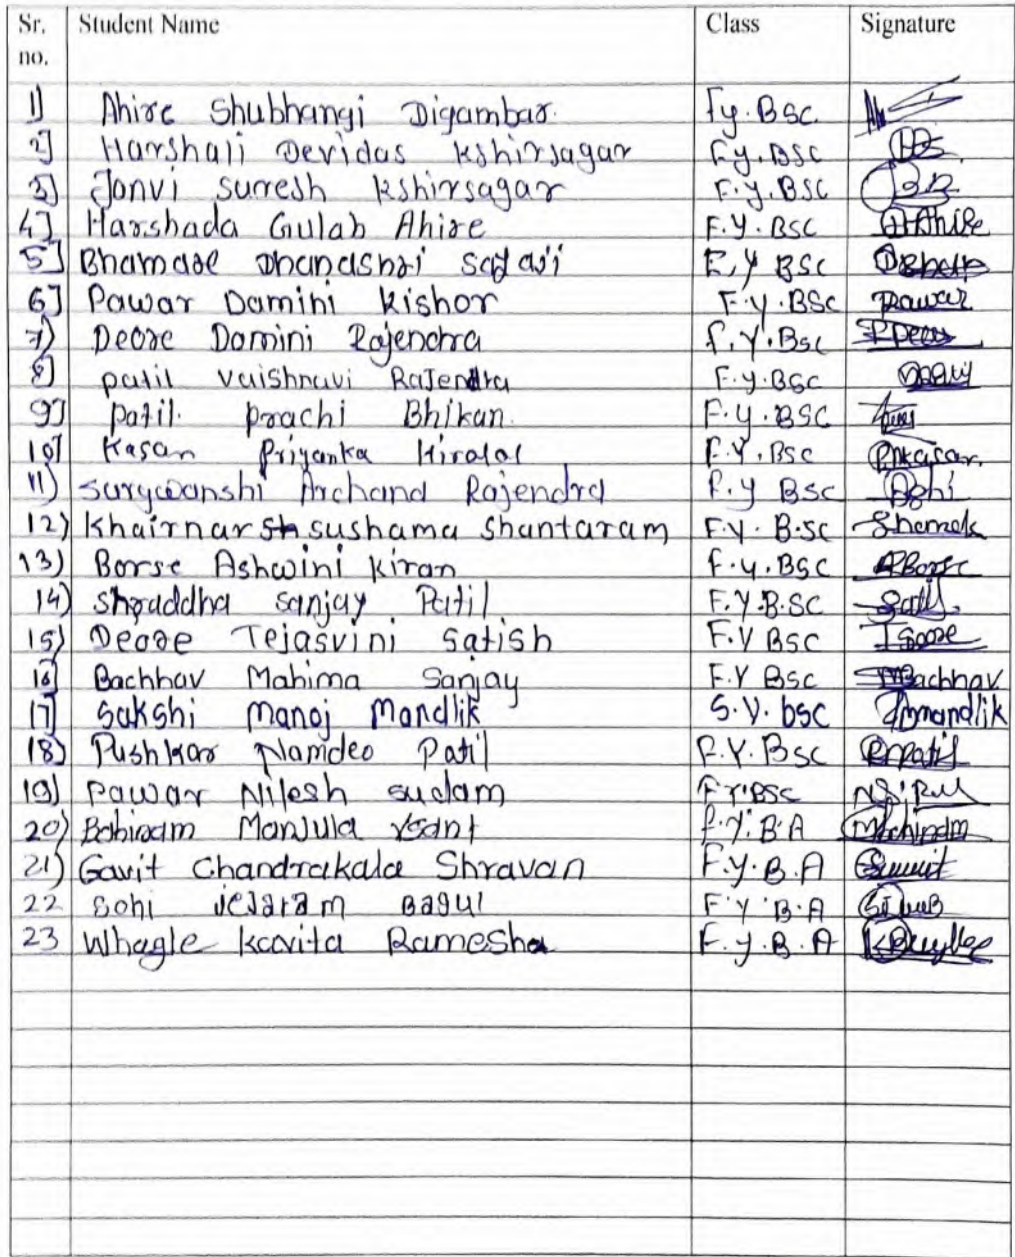 Sr. no. Student Name Class Signature
1] Ahire Shubhangi Digambar. Fy.BSC.
2] Harshali Devidas kshirsagar Fy.BSC
3] Jonvi suresh kshirsagar F.y.BSC
4] Harshada Gulab Ahire F.Y.BSC Ahire
5] Bhamare Dhanashri F.Y BSC
6] Pawar Damini Kishor F.y.BSc Pawar
7) Deore Damini Rajendra F.Y.BSc
8] patil vaishnavi RaJendra F.y.BSC
9] patil. prachi Bhikan. F.y.BSC
10] Kasan Priyanka Hiralal F.Y.BSC
11) surywanshi Archana Rajendra F.y BSC
12) Khairnar sushama shantaram F.Y. B.SC
13) Borse Ashwini kiran F.y.BSC ABorse
14) shraddha sanjay Patil F.Y.B.SC
15) Deore Tejasvini satish F.Y BSC
16] Bachhav Mahima Sanjay F.Y BSC MBachhav
17] Sakshi manoj mandlik S.Y.bsc mandlik
18) Pushkar Namdeo Patil F.Y.BSC Patil
19) Pawar Nilesh sudam F.Y.BSC
20) Bahiram Manjula F.Y.B.A
21) Gavit Chandrakala Shravan F.y.B.A
22 Sohi Bagul F.Y.B.A
23 Whagle kavita Ramesha F.y.B.A